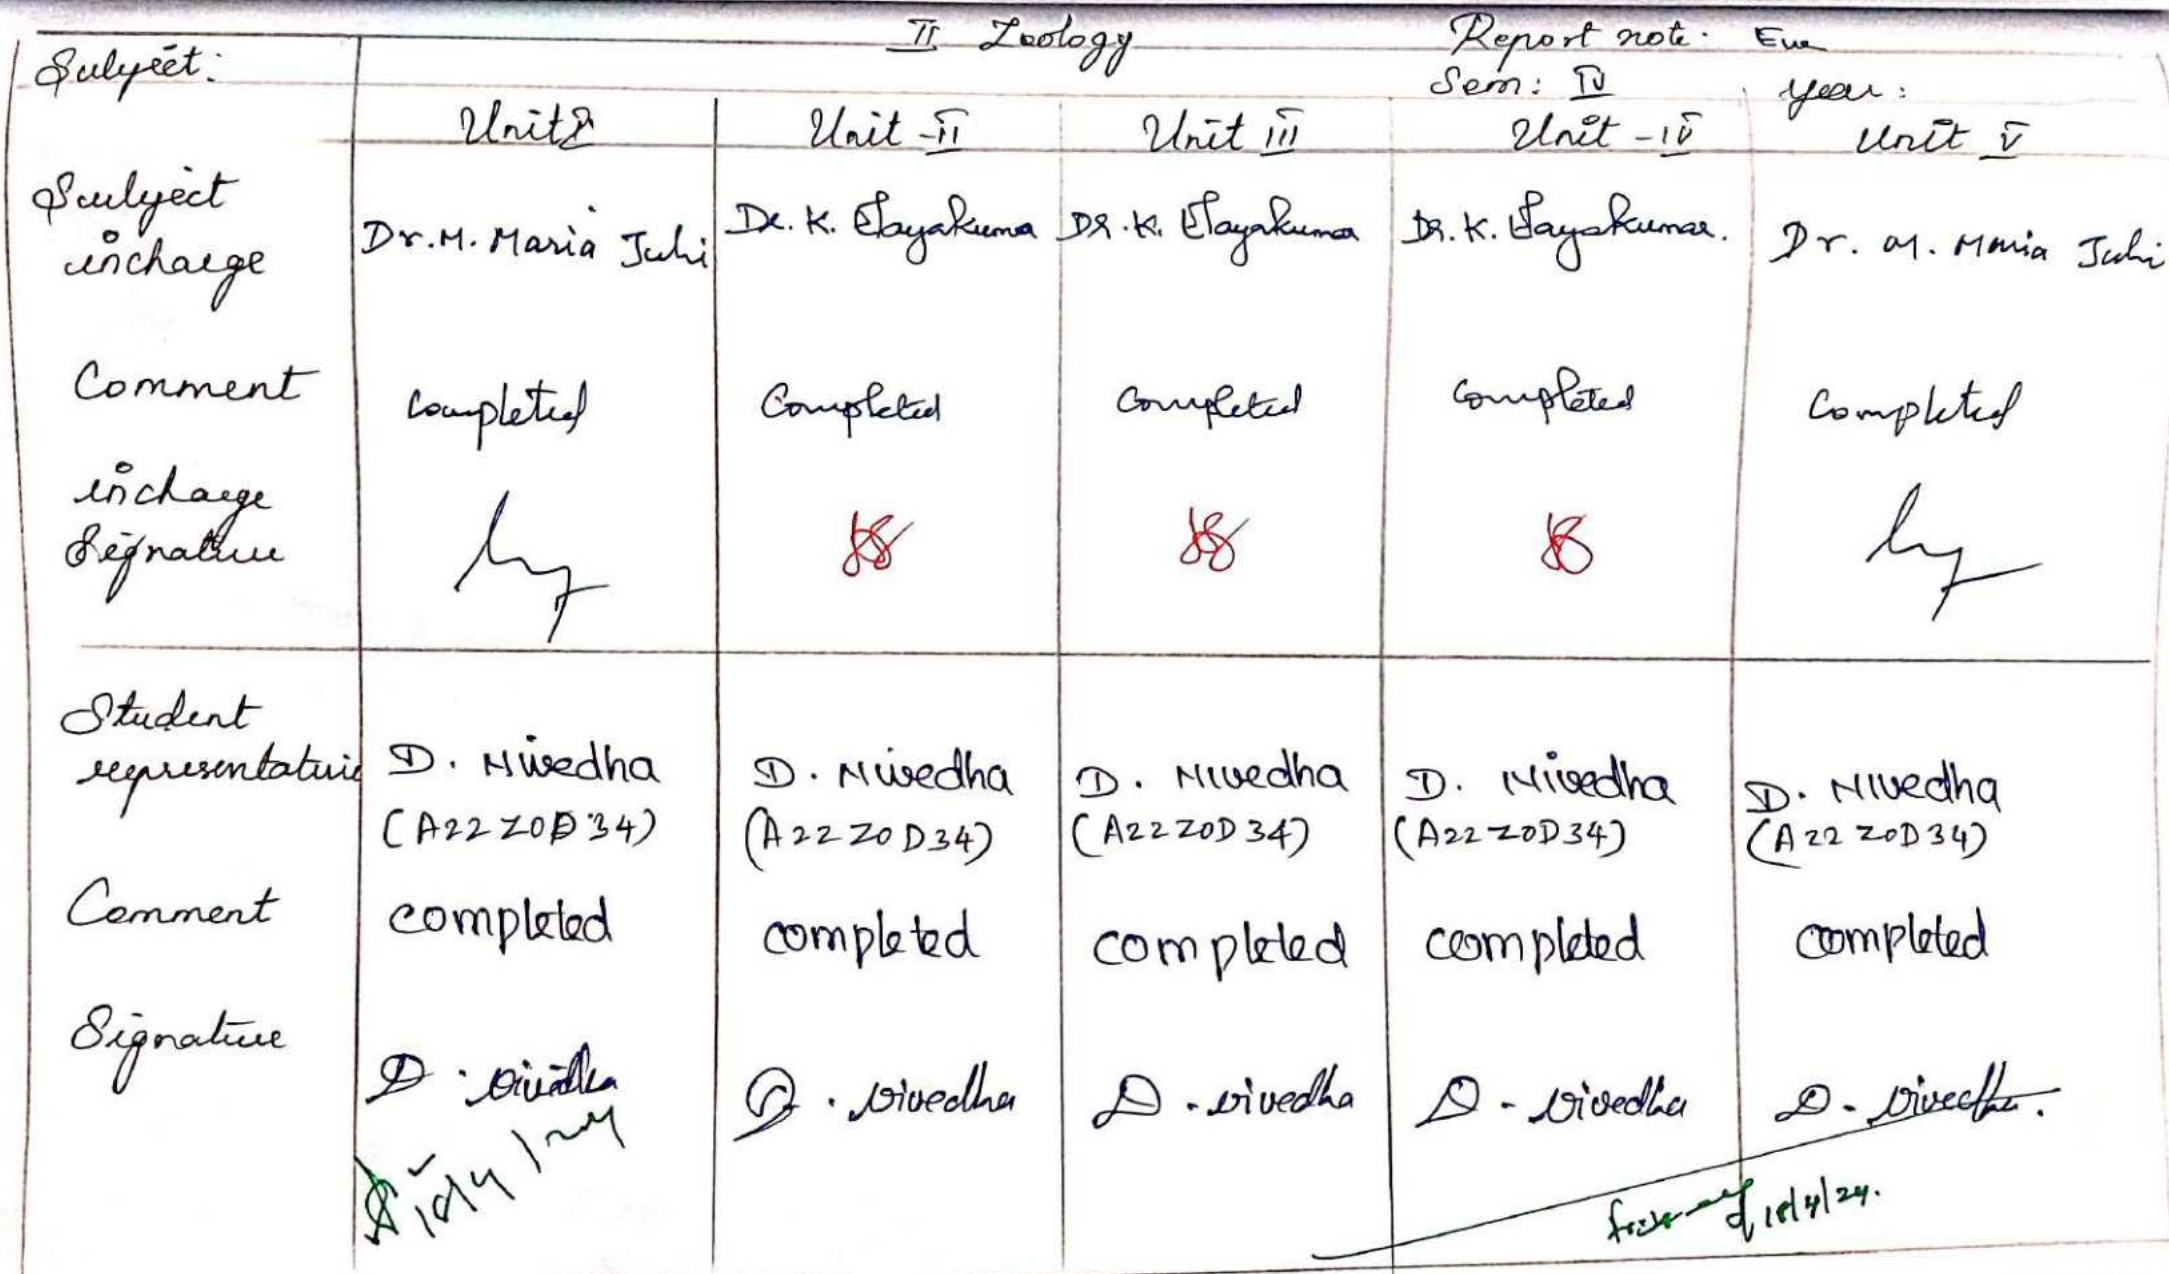 II Zoology Report note: Eve
Subject: Sem: IV year:
Unit I Unit - II Unit III Unit - IV Unit V
Subject incharge Dr. M. Maria Juli Dr. K. Elayakumar Dr. K. Elayakumar Dr. K. Elayakumar. Dr. M. Maria Juli
Comment completed Completed Completed Completed Completed
incharge
Signature
Student
representative D. Nivedha D. Nivedha D. Nivedha D. Nivedha D. Nivedha
(A22ZOD34) (A22ZOD34) (A22ZOD34) (A22ZOD34) (A22ZOD34)
Comment completed completed completed completed completed
Signature D. Nivedha D. Nivedha D. Nivedha D. Nivedha D. Nivedha.
18/4/24.